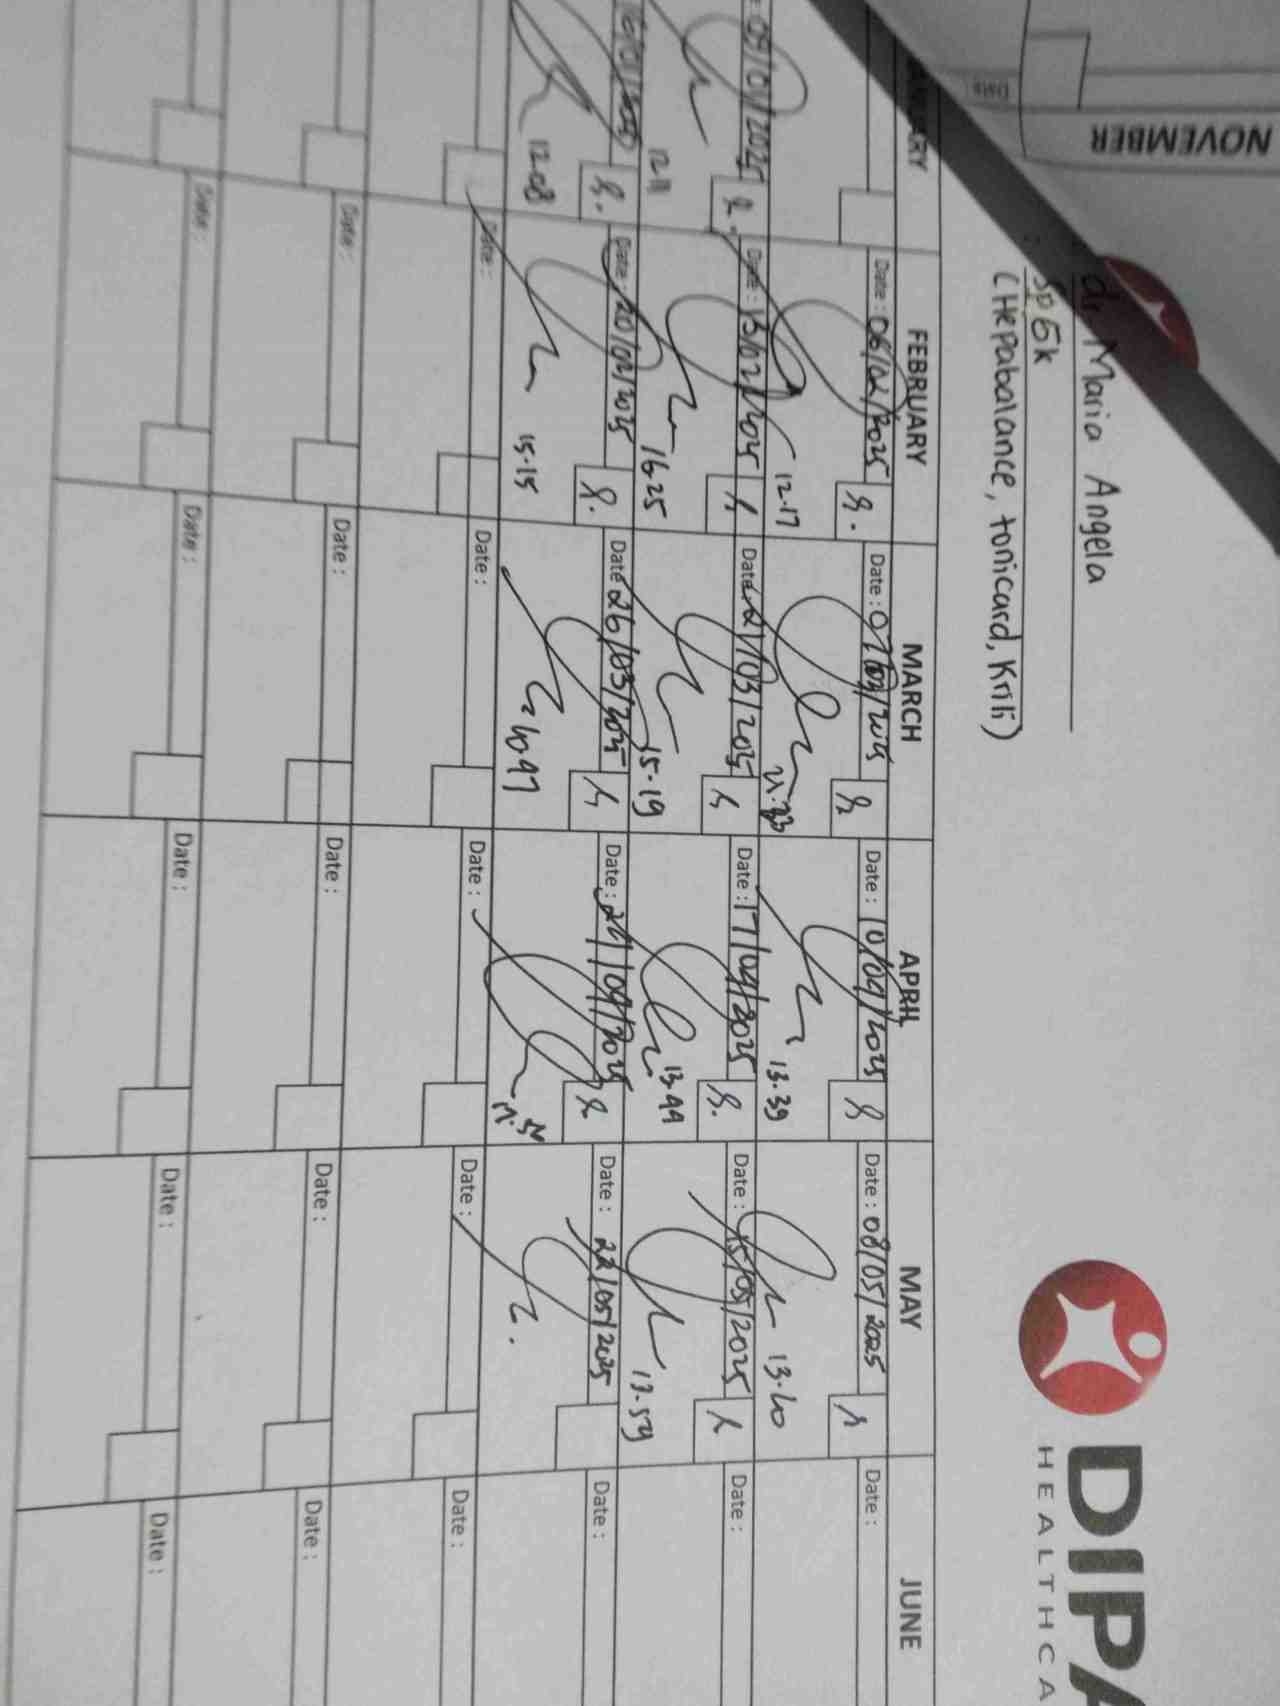 NOVEMBER
Date
dr Maria Angela
SpGk
(Hepabalance, tonicard, Krili)
DIPA
HEALTHCA
FEBRUARY MARCH APRIL MAY JUNE
Date : 06/02/2025 Date : 07/03/2025 Date : 10/04/2025 Date : 08/05/2025 Date :
12.17 13.39 13.40
09/01/2025 Date : 13/02/2025 Date : 21/03/2025 Date : 17/04/2025 Date : 15/05/2025 Date :
12.11 16.25 15.19 13.44 13.59
16/01/2025 Date : 20/02/2025 Date : 26/03/2025 Date : 24/04/2025 Date : 22/05/2025 Date :
12.08 15.15
Date : Date : Date : Date : Date :
Date : Date : Date : Date : Date :
Date : Date : Date : Date : Date :